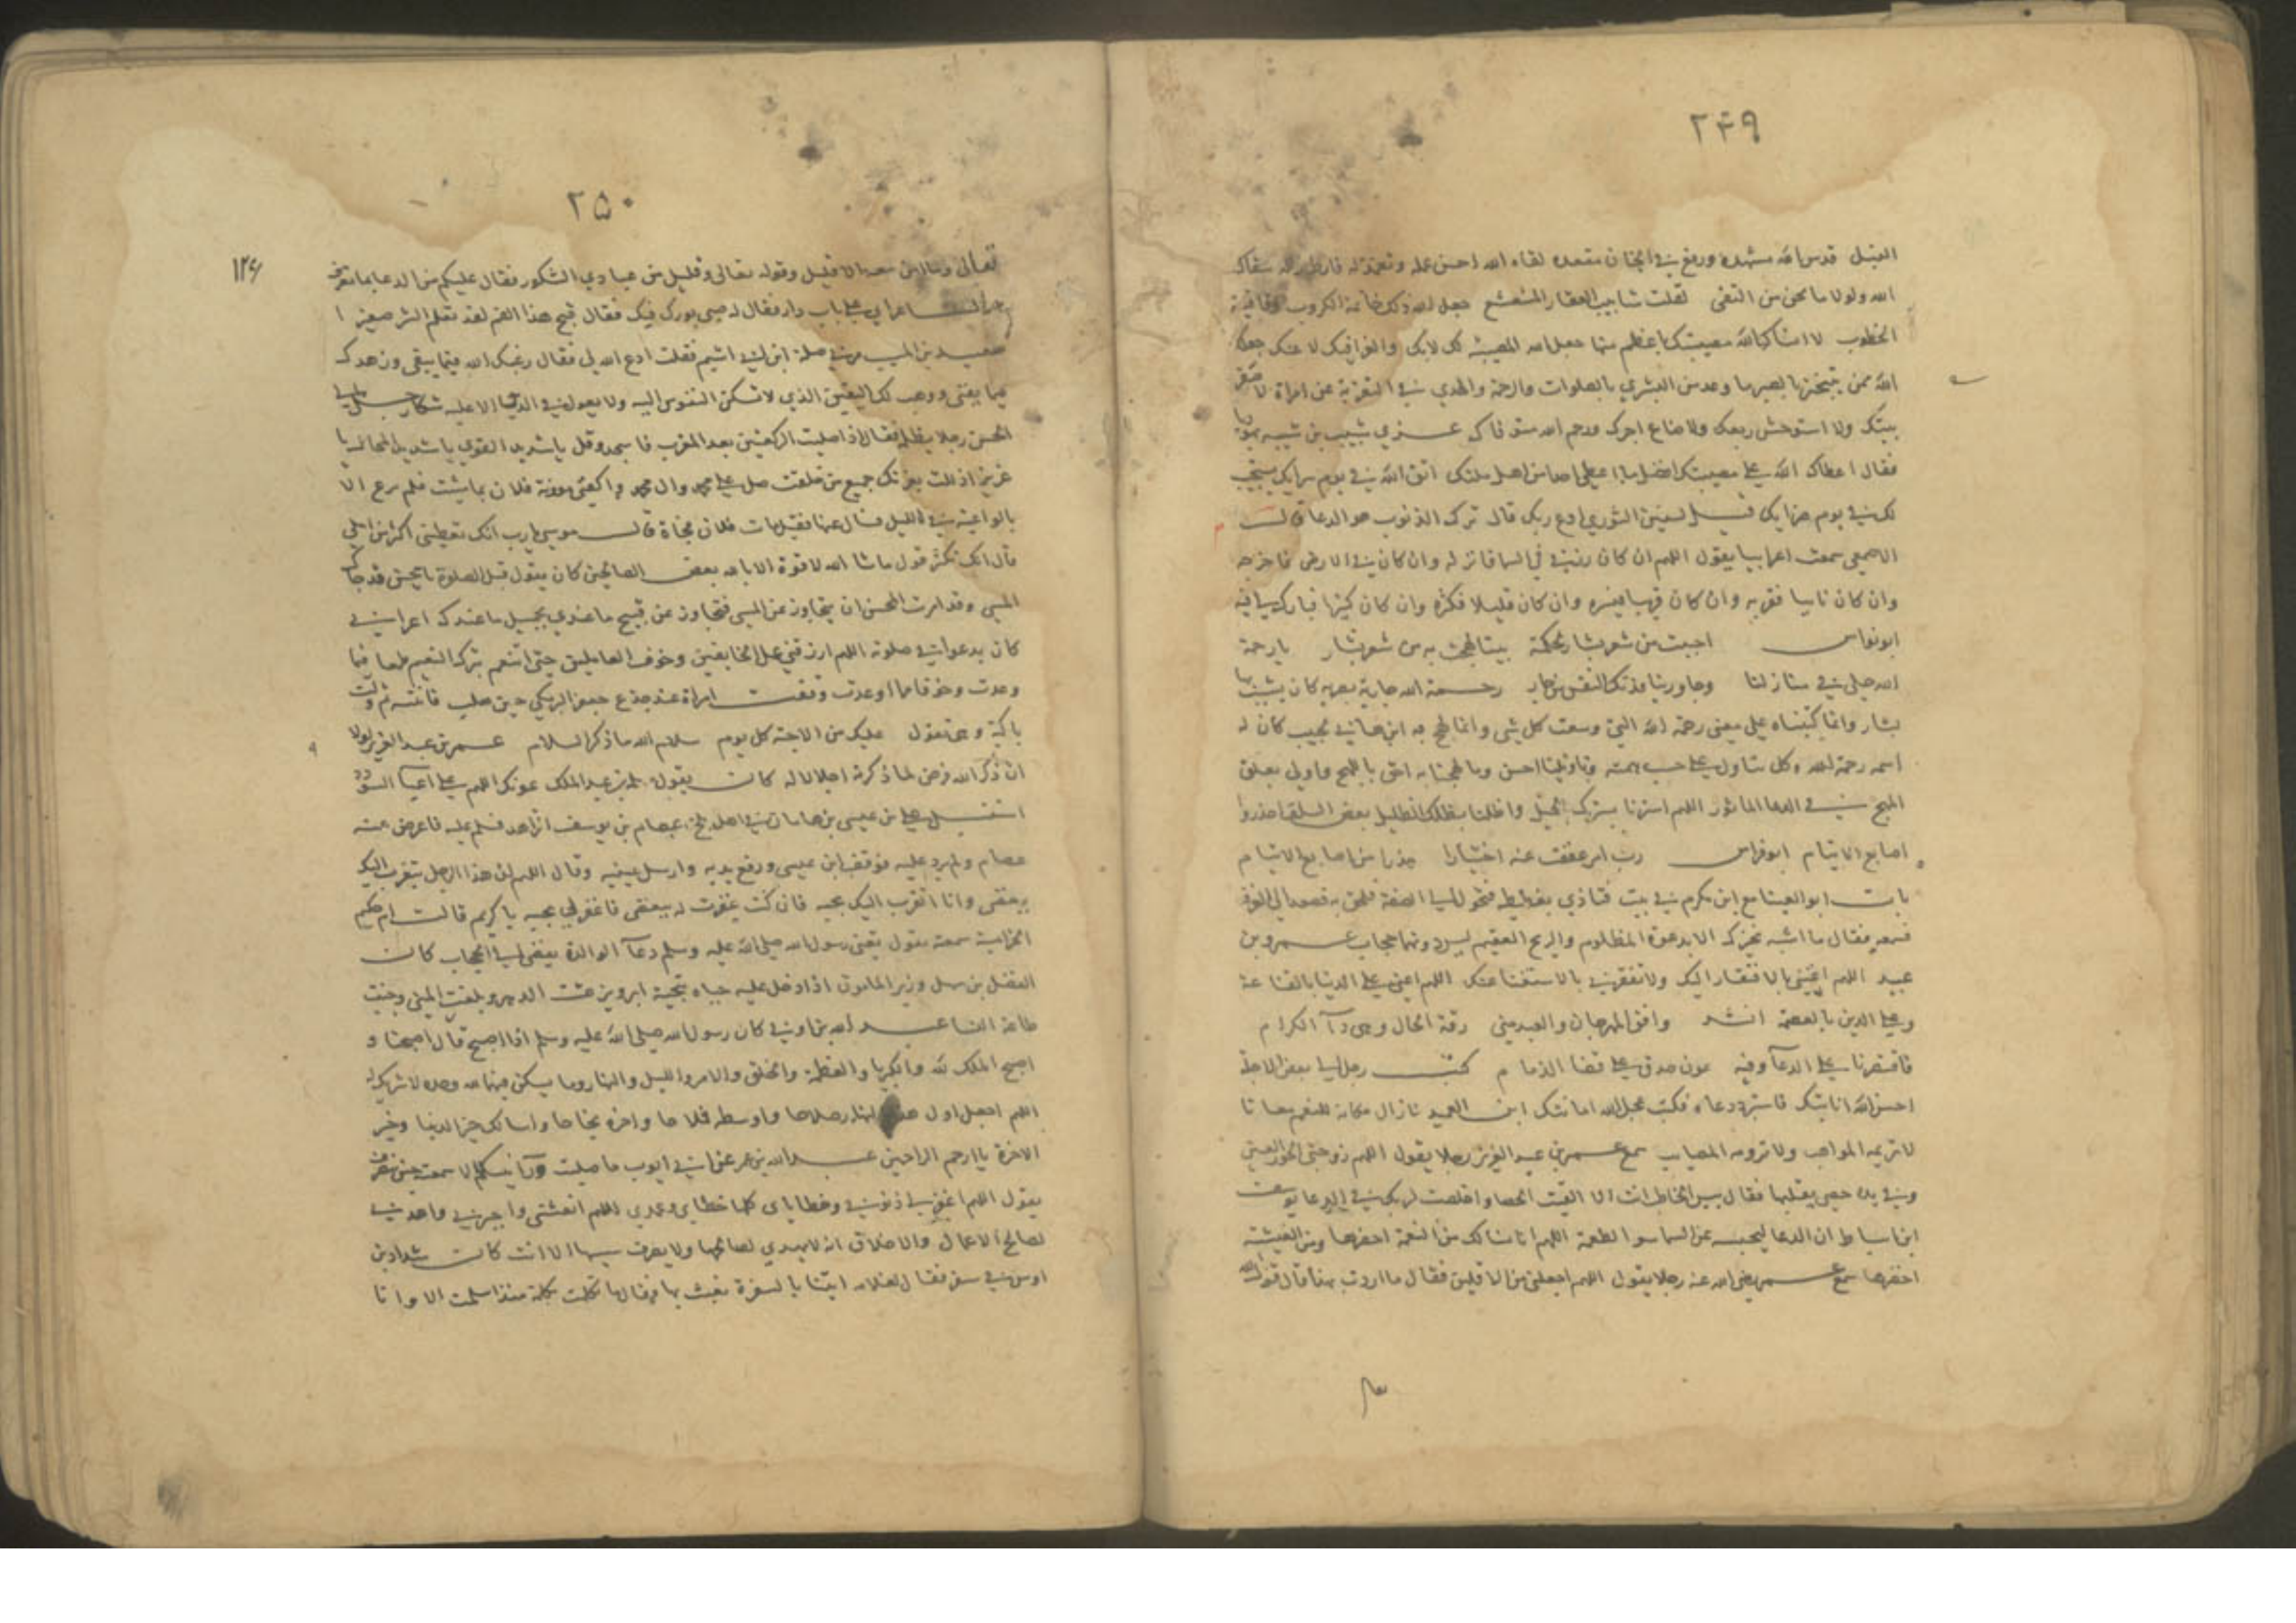 ٢٤٩
الله ولولا ما نحن من التقى لقلت شابيب العقار المشعشع جعل الله ذلك خاتمة الكروب وقافية
الخطوب لا انساك الله مصيبتك باعظم منها جعل الله المصيبة لك لا بك والعزا فيك لا عنك جعلك
الله ممن يتنجز بالصبر ما وعد من البشري بالصلوات والرحمة والهدي في التعزية عن امراة لا صفر
بيتك ولا استوحش ربعك ولا ضاع اجرك ورحم الله متوفاك عزي شبيب بن شيبه
فقال اعطاك الله علي مصيبتك افضل ما اعطي احدا من اهل ملتك اتق الله في يوم سرايك يستجيب
لك في يوم ضرايك قيل لسفين الثوري ادع ربك قال ترك الذنوب هو الدعا قالــ
الاصمعي سمعت اعرابيا يقول اللهم ان كان رزقي في السما فانزله وان كان في الارض فاخرجه
وان كان نائيا فقربه وان كان قريبا فيسره وان كان قليلا فكثره وان كان كثيرا فبارك لي فيه
ابو نواس اجبت من شعر بشار لحكمة بيتا لهجت به من شعر بشار يا رحمة
الله حلي في منازلنا وجاورينا فدتك النفس من جار رحمة الله جارية بصرية كان يشبب بها
بشار وانما كتبناه علي معني رحمة الله التي وسعت كل شي وانما لهج به ابن هاني لحبيب كان له
اسمه رحمة الله وكل متاول علي حسب همته وتاويلنا احسن وما لهجنا به احق باللهج واولي بعلق
المهج في الدعا الماثور اللهم استرنا بسترك الجميل واظلنا بظلك الظليل بعض السلف احذروا
اصابع الايتام ابو فراس رب امر عففت عنه اختيارا حذرا من اصابع الايتام
بات ابو العينا مع ابن مكرم في بيت فتاذي بغطيطه فتحول الي الصفة فلحق به فصعد الي الغرفة
فسمعه فقال ما اشبه نخيرك الا بدعوة المظلوم والريح العقيم ليس دونهما حجاب عمرو بن
عبيد اللهم اغنني بالافتقار اليك ولا تفقرني بالاستغنا عنك اللهم اعني علي الدنيا بالقناعة
وعلي الدين بالعصمة انشد وافق المهرجان والعيد مني رقة الحال وهي دآ الكرام
فاقتصرنا علي الدعآ وفيه عون صدق علي قضا الذمام كتب رجل الي بعض الاجلة
لا تريه المواهب ولا ترومه المصايب سمع عمر بن عبد العزيز رجلا يقول اللهم زوجني الحور العين
وفي يده حصي يقلبها فقال بئس الخاطب انت الا القيت الحصا واخلصت لربك في الدعا يوسف
ابن اسباط ان الدعا ليحبسه عن السما سوا الطعمة اللهم انا نسالك من النعمة احضرها ومن العيشة
اخضرها سمع عمر رضي الله عنه رجلا يقول اللهم اجعلني من الاقلين فقال ما اردت بهذا قال قول الله
٢٥٠
١٢٤
تعالي وما امن معه الا قليل وقوله تعالي وقليل من عبادي الشكور فقال عليكم من الدعا بما تعرف
اعرابي علي باب دار فقال له صبي بورك فيك فقال قبح هذا الفم لقد تعلم الشر صغيرا
سعيد بن المسيب مر بي صلة ابن اشيم فقلت ادع الله لي فقال رغبك الله فيما يبقي وزهدك
فيما يفني ووهب لك اليقين الذي لا تسكن النفوس الا اليه ولا يعول في الدين الا عليه شكا رجل الي
الحسن رجلا يظلمه فقال اذا صليت الركعتين بعد المغرب فاسجد وقل يا شديد القوي يا شديد المحال يا
عزيز اذللت بعزتك جميع من خلقت صل علي محمد وال محمد واكفني مؤونة فلان بما شئت فلم يرع الا
بالواعية في الليل فسال عنها فقيل مات فلان فجاة قالــ موسي يا رب انك تعطيني اكثر من املي
قال انك تكثر قول ما شا الله لا قوة الا بالله بعض الصالحين كان يقول قبل الصلوة يا محسن قد جاك
المسي وقد امرت المحسن ان يتجاوز عن المسي فتجاوز عن قبيح ما عندي بجميل ما عندك اعرابي
كان يدعو في صلوته اللهم ارزقني عمل الخايفين وخوف العاملين حتي اتنعم بترك النعيم طمعا فيما
وعدت وخوفا مما اوعدت وقفت امراة عند جذع جعفر البرمكي حين صلب
باكية وهي تقول عليك من الاحبة كل يوم سلام الله ما ذكر السلام عمر بن عبد العزيز لولا
ان ذكر الله فرض لما ذكرته اجلالا له كان يقول عبد الملك عونك اللهم علي
استقبل علي بن عيسي بن ماهان في اهل بلخ عصام بن يوسف الزاهد فسلم عليه فاعرض عنه
عصام ولم يرد عليه فوقف ابن عيسي ورفع يديه وارسل عينيه وقال اللهم ان هذا الرجل يتقرب اليك
ببغضي وانا اتقرب اليك بحبه فان كنت غفرت له ببغضي فاغفر لي بحبه يا كريم قالت ام حكيم
الخزاعية سمعته يقول يعني رسول الله صلي الله عليه وسلم دعآ الوالدة يفضي الي الحجاب كان
الفضل بن سهل وزير المامون اذا دخل عليه حياه بتحية ابرويز عشت الدهر وبلغت المني وجنبت
طاعة النسا عبد الله بن ابي اوفي كان رسول الله صلي الله عليه وسلم اذا اصبح قال اصبحنا و
اصبح الملك لله والكبريا والعظمة والخلق والامر والليل والنهار وما يسكن فيهما لله وحده لا شريك له
اللهم اجعل اول هذا النهار صلاحا واوسطه فلاحا واخره نجاحا واسالك خير الدنيا وخير
الاخرة يا ارحم الراحمين عبد الله بن عمر عن ابي ايوب ما صليت ورآ نبيكم الا سمعته حين ينصرف
يقول اللهم اغفر لي ذنوبي وخطاياي كلها خطاي وعمدي اللهم انعشني واجبرني واهدني
لصالح الاعمال والاخلاق انه لا يهدي لصالحها ولا يصرف سيئها الا انت كان شداد بن
اوس في سفر فقال لغلامه ايتنا بالسفرة نعبث بها فقال ما تكلمت بكلمة منذ اسلمت الا وانا